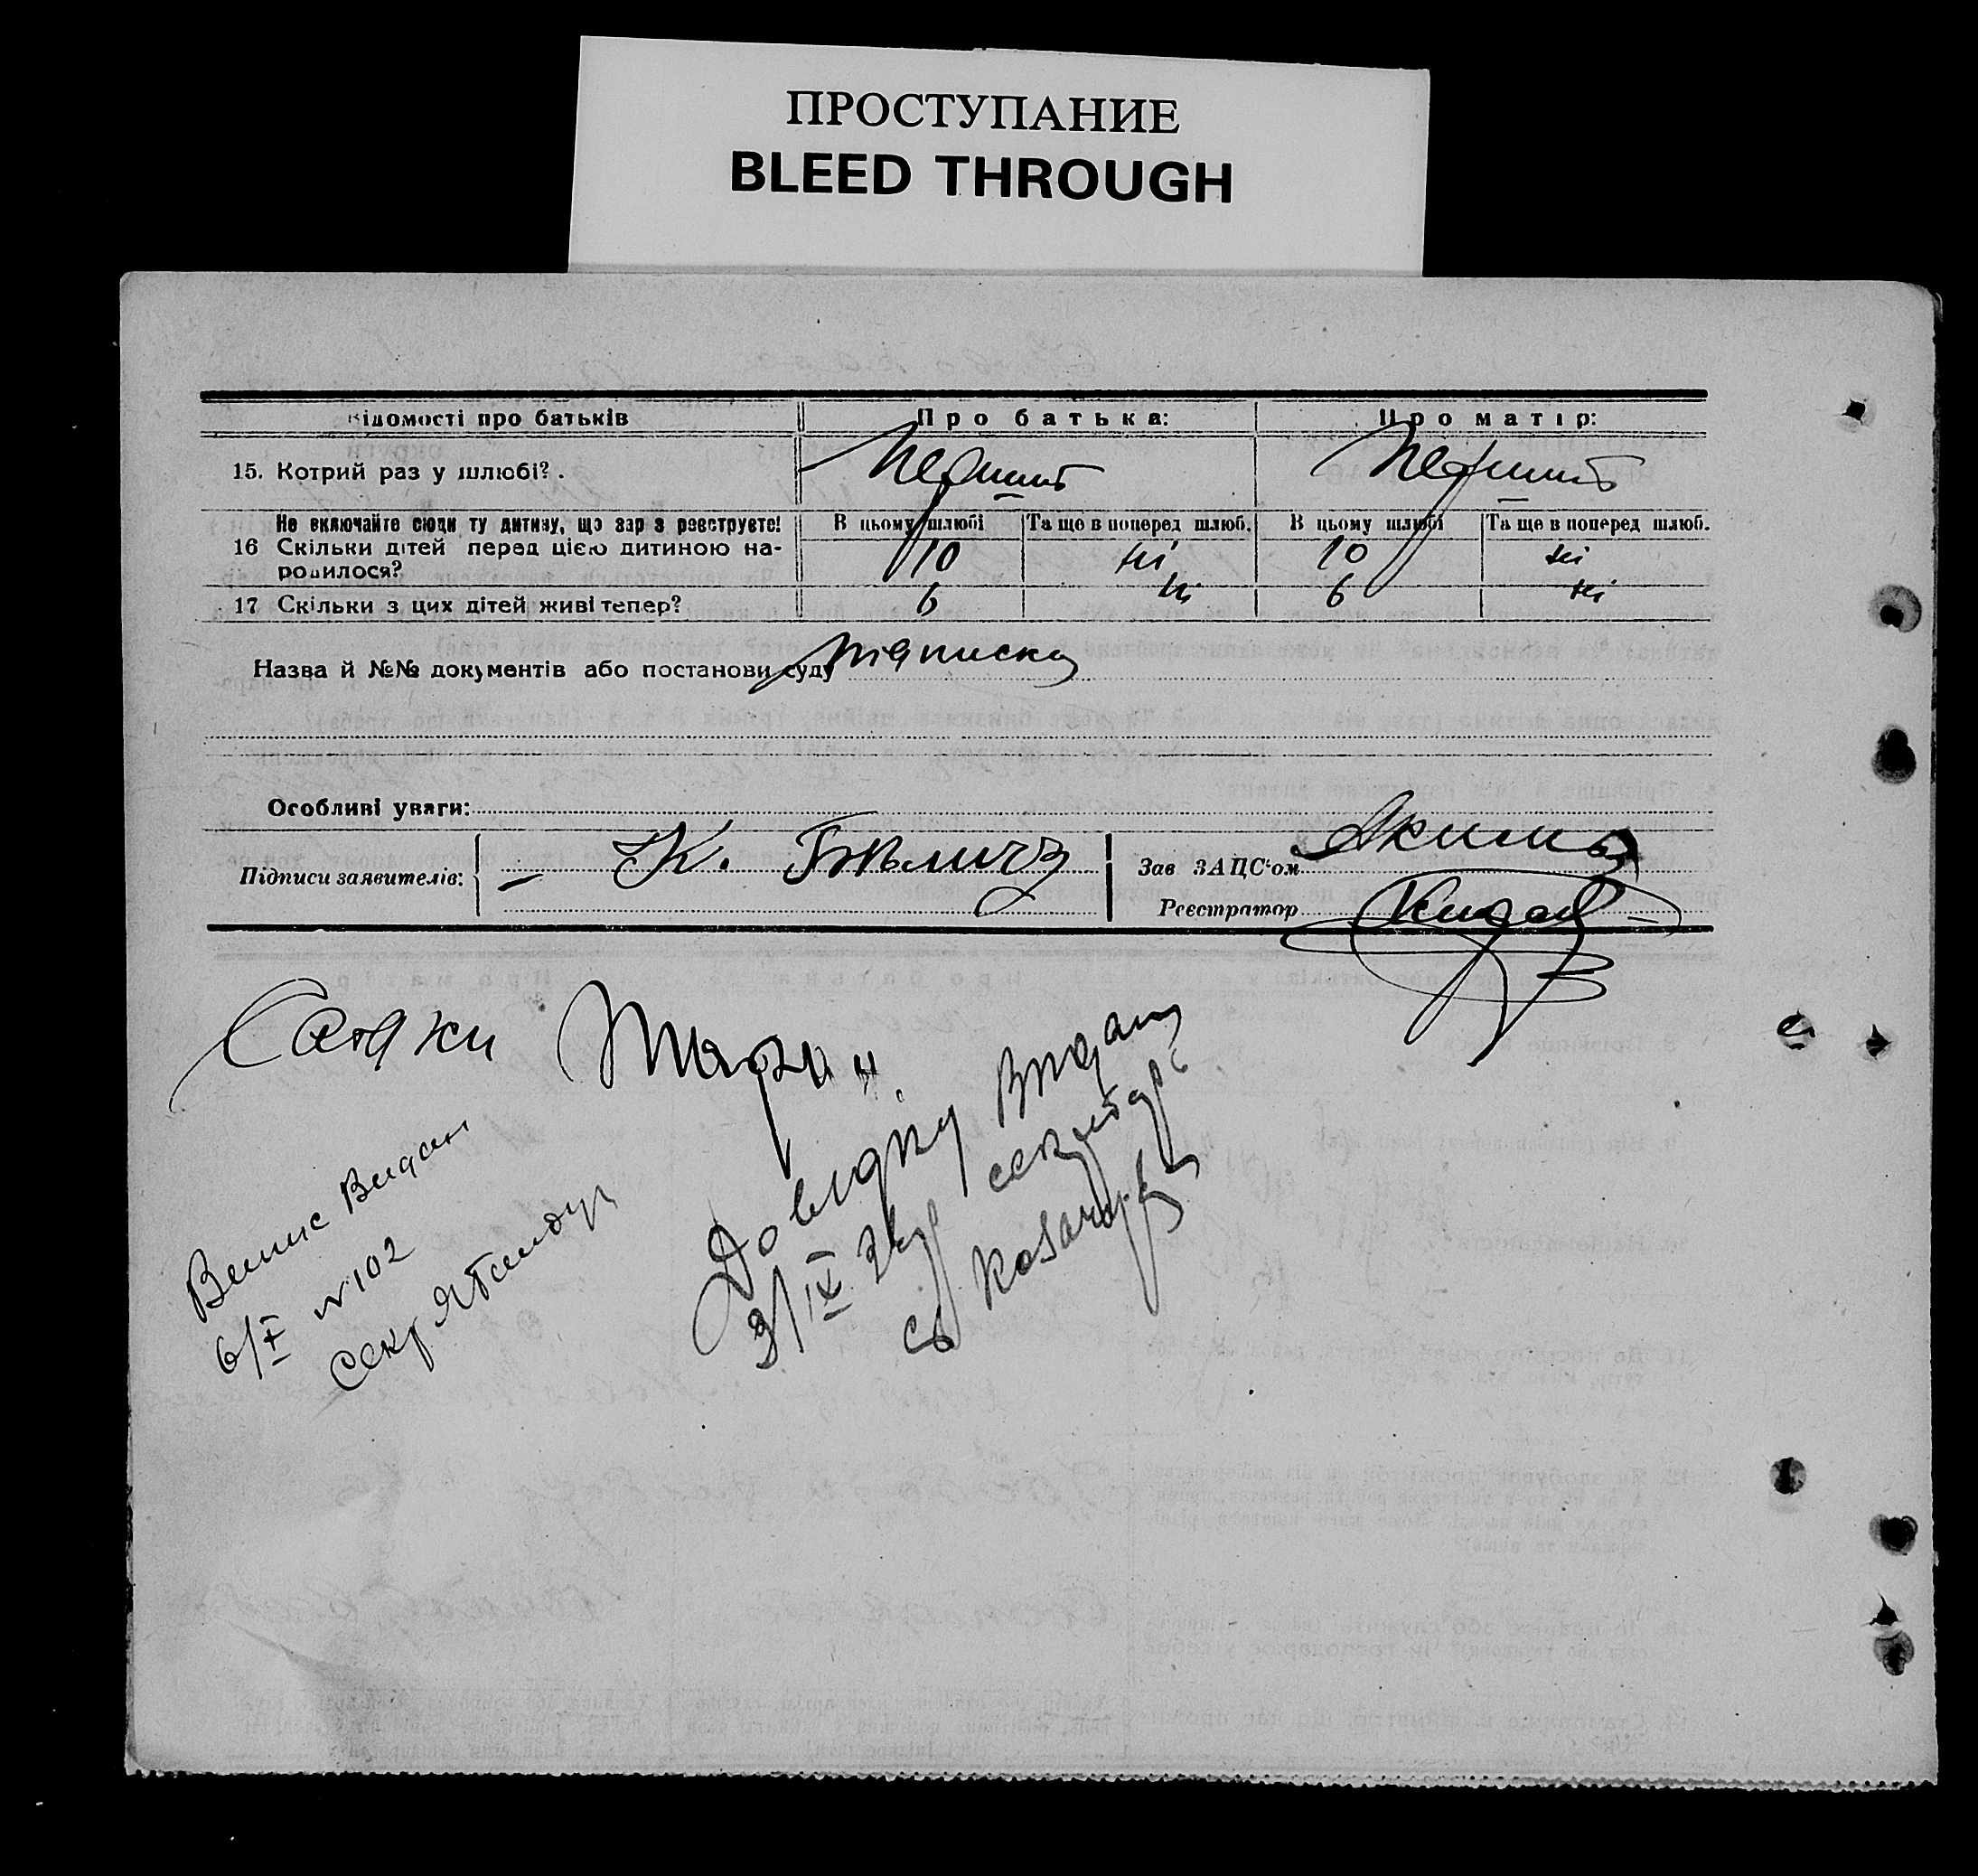 ПРОСТУПАНИЕ
BLEED THROUGH
Відомості про батьків
Про батька:
Про матір:
15. Котрий раз у шлюбі?
Перший
Перший
Не включайте сюди ту дитину, що зараз реєструєте!
В цьому шлюбі
Та ще в поперед шлюб.
В цьому шлюбі
Та ще в поперед шлюб.
16 Скільки дітей перед цією дитиною на-
родилося?
10
ні
10
ні
17 Скільки з цих дітей живі тепер?
6
ні
6
ні
Назва й №№ документів або постанови суду
підписка
Особливі уваги:
Підписи заявителів:
К.
Зав ЗАЦС'ом
Реєстратор
Довидку видан
3/IX секретарь
с/
Випис Видан
6/X N 102
Секр